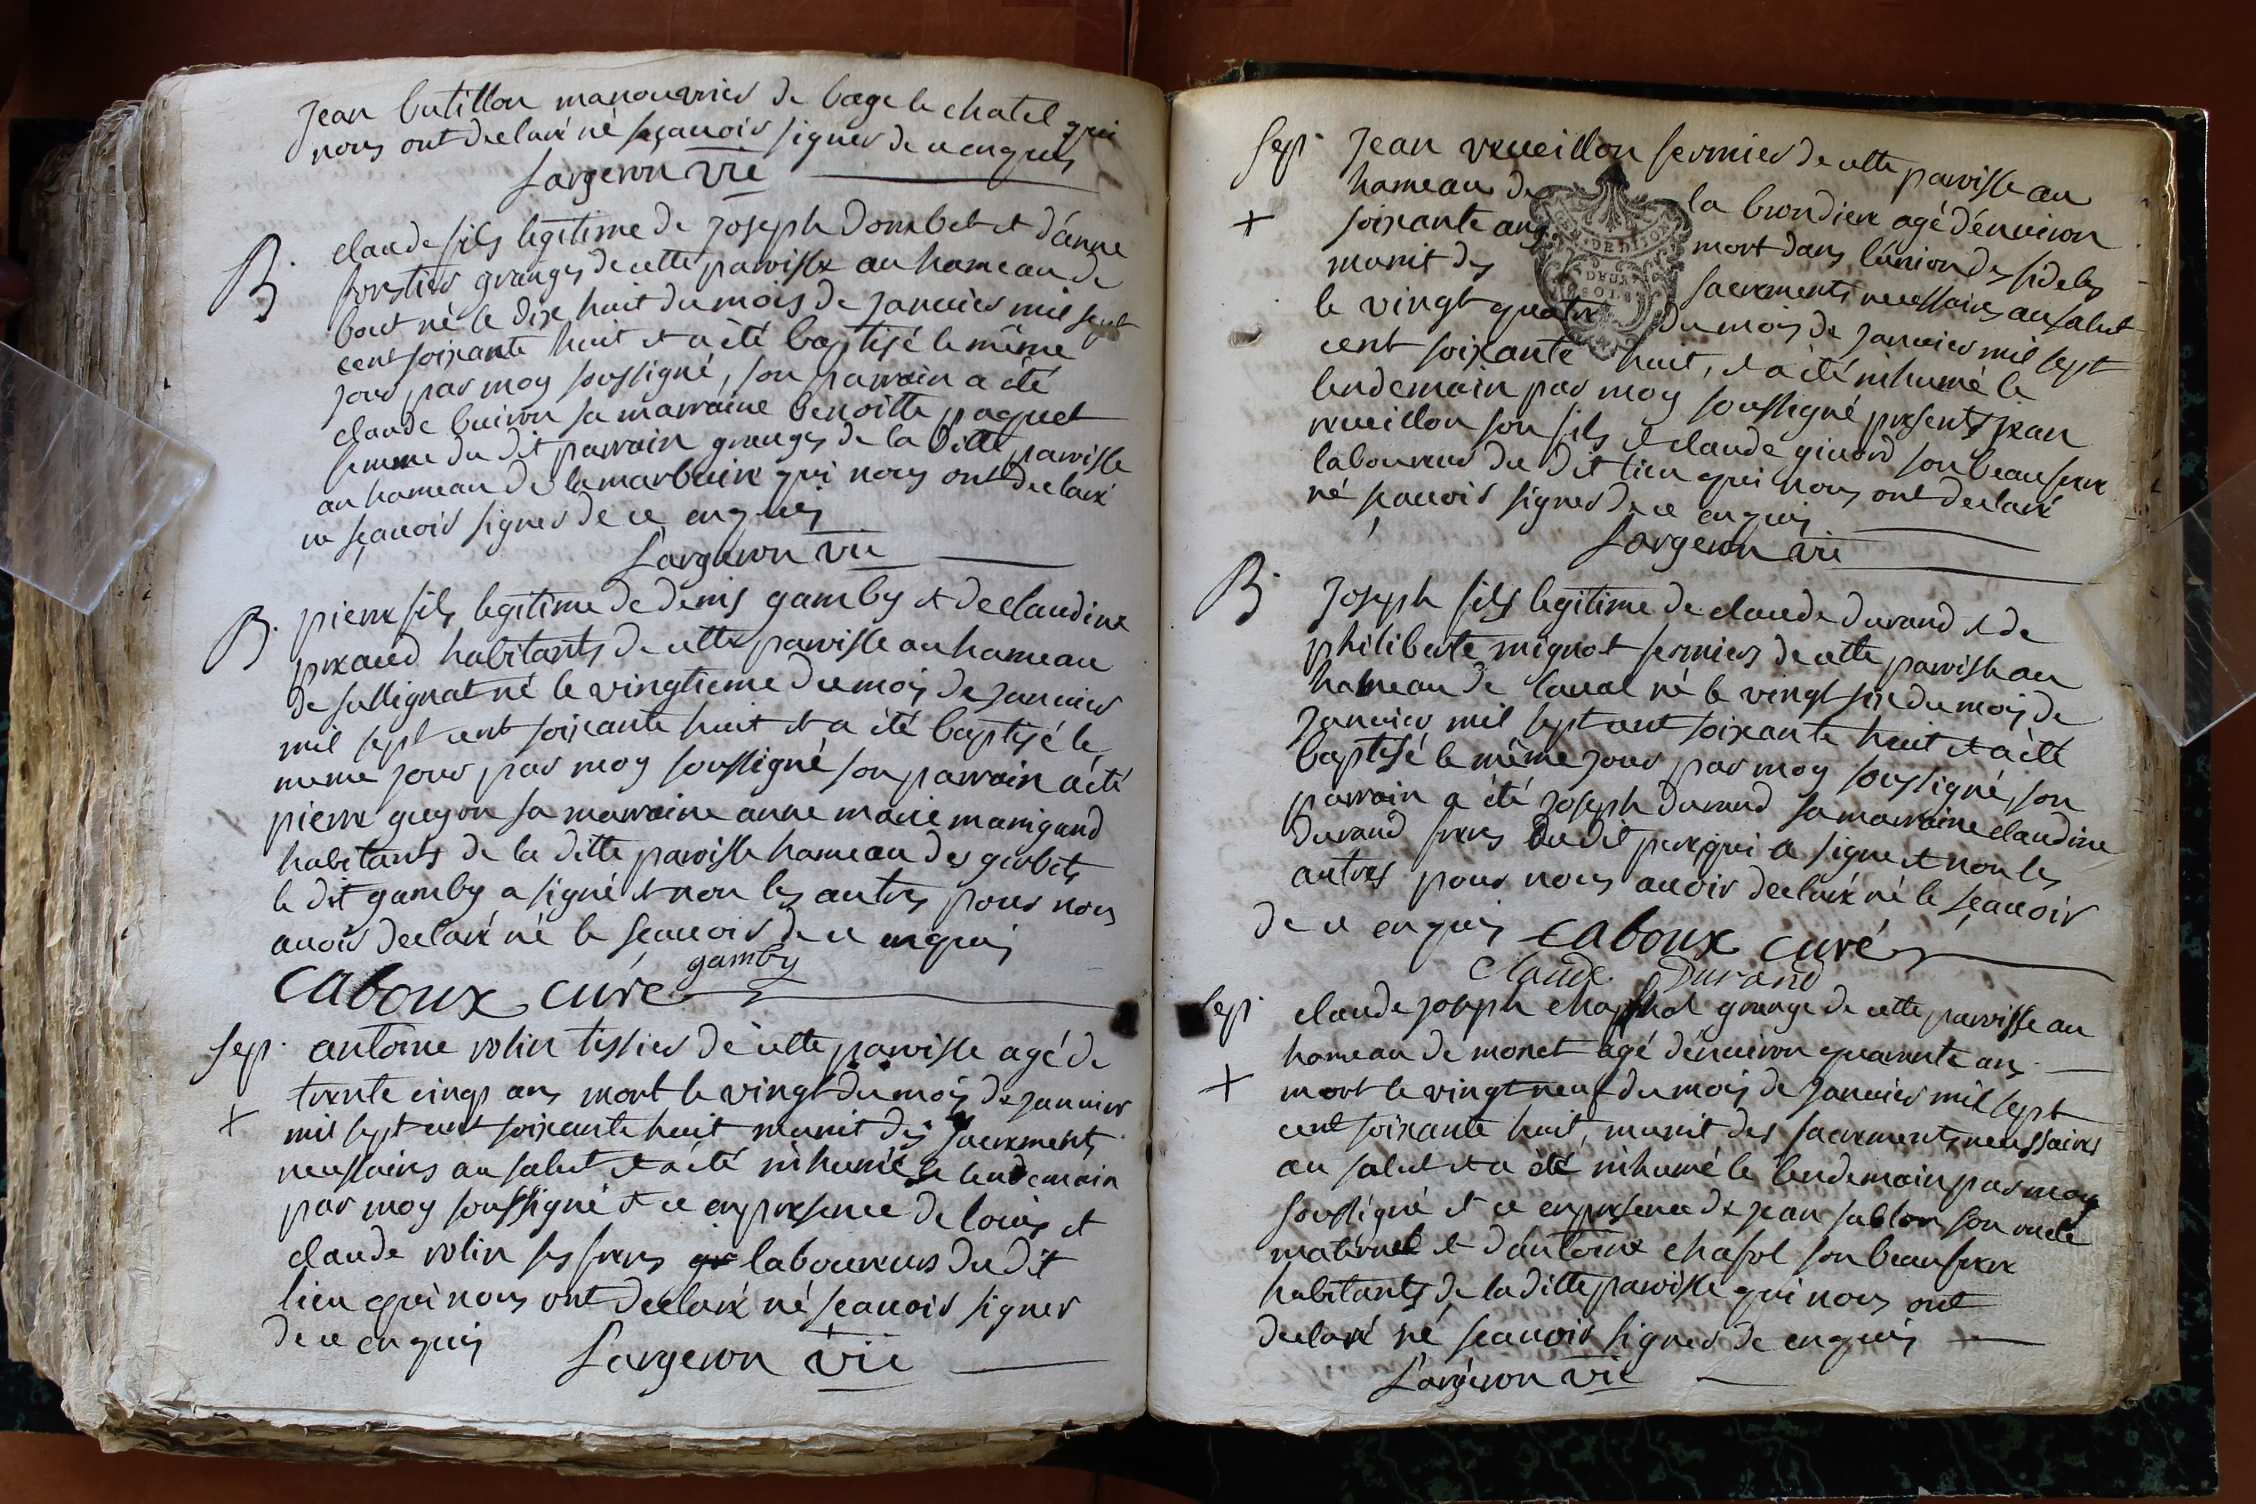 Jean butillon manouvrier de bage le chatel qui
nous ont declaré né sçauoir signer de ce enquis
Largeron vic
B. claude fils legitime de Joseph Dombet et d'anne
forstier granger de cette paroisse au hameau de
bout né le dix huit du mois de januier mil sept
cent soixante huit et a été baptisé le même
jour par moy soussigné, son parrain a été
claude buiron sa marraine benoitte paquet
femme du dit parrain granger de la ditte paroisse
au hameau de la marbaire qui nous ont declaré
ne sçauoir signer de ce enquis
Largeron vic
B. pierre fils legitime de denis gamby et de claudine
preaud habitants de cette paroisse au hameau
de sullignat né le vingtieme du mois de januier
mil sept cent soixante huit et a été baptisé le
meme jour par moy soussigné son parrain a été
pierre guyon sa marraine anne marie manigand
habitants de la ditte paroisse hameau des girbets
le dit gamby a signé et non les autres pour nous
auoir declaré né le sçauoir de ce enquis
gamby
caboux curé
sep. antoine rolin tissier de cette paroisse agé de
trente cinq ans mort le vingt du mois de januier
+ mil sept cent soixante huit munit des sacrements
necessaires au salut et a été inhumé le lendemain
par moy soussigné et ce en presence de louis et
claude rolin ses freres laboureurs du dit
lieu qui nous ont declaré né sçauoir signer
de ce enquis
Largeron vic
sep. Jean reueillon fermier de cette paroisse au
hameau de la brondiere agé d'enuiron
+ soixante ans mort dans l'union des fideles
munit des sacrements necessaires au salut
le vingt quatre du mois de januier mil sept
cent soixante huit, et a été inhumé le
lendemain par moy soussigné presents jean
reueillon son fils et claude giuord son beau frere
laboureur du dit lieu qui nous ont declaré
né sçauoir signer de ce enquis
Largeron vic
GEN. DE DIJON
DEUX
SOLS
B. Joseph fils legitime de claude durand et de
philiberte mignot fermiers de cette paroisse au
hameau de laual né le vingt six du mois de
januier mil sept cent soixante huit et a été
baptisé le même jour par moy soussigné, son
parrain a été joseph durand sa marraine claudine
durand freres du dit pere qui a signé et non les
autres pour nous auoir declaré né le sçauoir
de ce enquis caboux curé
claude Durand
sep. claude joseph granger de cette paroisse au
hameau de monet agé d'enuiron quarente ans
+ mort le vingt neuf du mois de januier mil sept
cent soixante huit, munit des sacrements necessaires
au salut et a été inhumé le lendemain par moy
soussigné et ce en presence de jean sablon son oncle
maternel et d'antoine chafol son beau frere
habitants de la ditte paroisse qui nous ont
declaré né sçauoir signer de enquis
Largeron vic